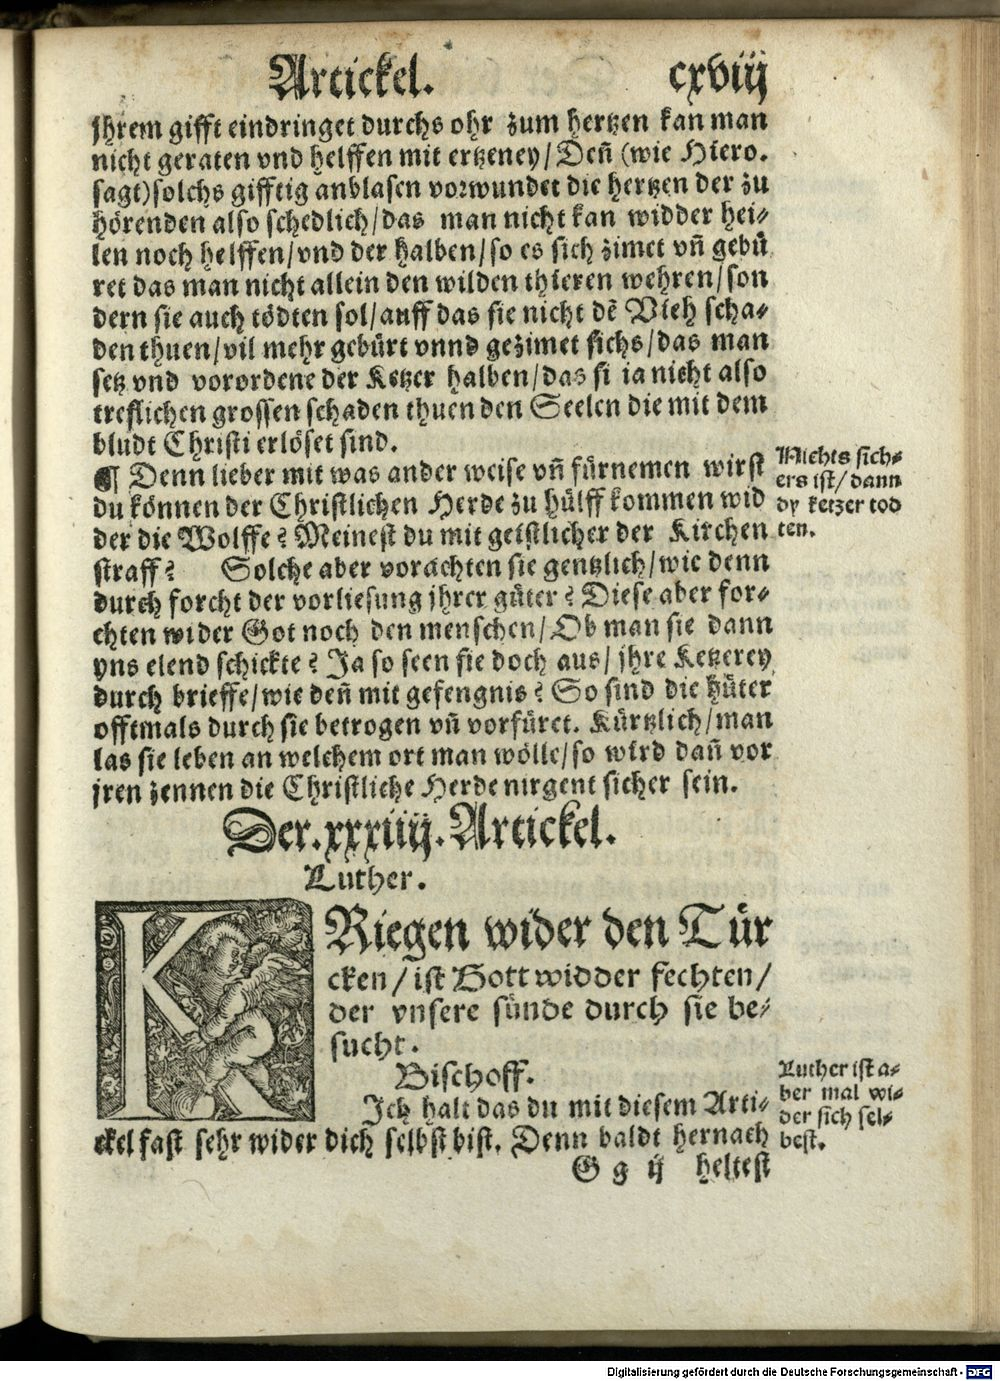 Artickel. cxviij
jhrem gifft eindringet durchs ohr zum hertzen kan man
nicht geraten vnd helffen mit ertzeney/Deñ (wie Hiero.
sagt)solchs gifftig anblasen vorwundet die hertzen der zu
hörenden also schedlich/das man nicht kan widder hei-
len noch helffen/vnd der halben/so es sich zimet vñ gebü
ret das man nicht allein den wilden thieren wehren/son
dern sie auch tödten sol/auff das sie nicht dē Vieh scha-
den thuen/vil mehr gebürt vnnd gezimet sichs/das man
setz vnd vorordene der Ketzer halben/das si ia nicht also
treflichen grossen schaden thuen den Seelen die mit dem
bludt Christi erlöset sind.
¶ Denn lieber mit was ander weise vñ fürnemen wirst
du können der Christlichen Herde zu hülff kommen wid
der die Wolffe? Meinest du mit geistlicher der Kirchen
straff? Solche aber vorachten sie gentzlich/wie denn
durch forcht der vorliesung jhrer güter? Diese aber for-
chten wider Got noch den menschen/Ob man sie dann
yns elend schickte? Ja so seen sie doch aus/jhre Ketzerey
durch brieffe/wie deñ mit gefengnis? So sind die hüter
offtmals durch sie betrogen vñ vorfüret. Kürtzlich/man
las sie leben an welchem ort man wölle/so wird dañ vor
jren zennen die Christliche Herde nirgent sicher sein.
Nichts sich-
ers ist/dann
dy ketzer tod
ten.
Der.xxxiiij.Artickel.
Luther.
KRiegen wider den Tür
cken/ist Gott widder fechten/
der vnsere sünde durch sie be-
sucht.
Bischoff.
Ich halt das du mit diesem Arti-
ckel fast sehr wider dich selbst bist. Denn baldt hernach
Luther ist a-
ber mal wi-
der sich sel-
best.
G g ij heltest
Digitalisierung gefördert durch die Deutsche Forschungsgemeinschaft - DFG